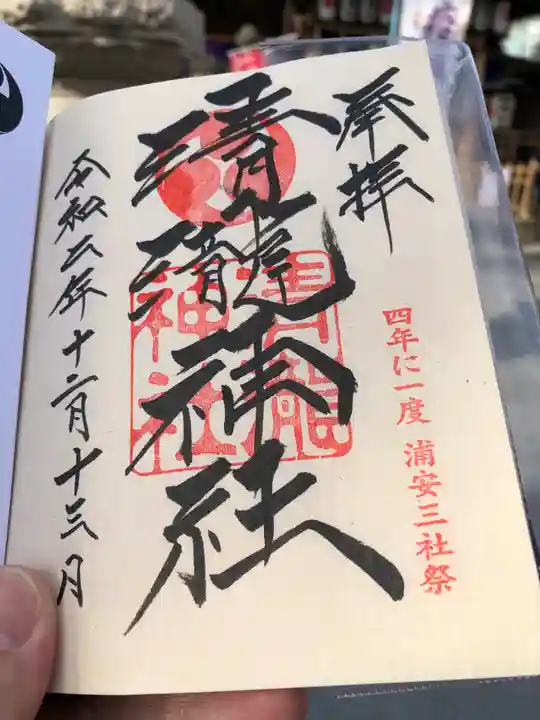 奉拝
四年に一度 浦安三社祭
清瀧神社
令和二年十二月十三日